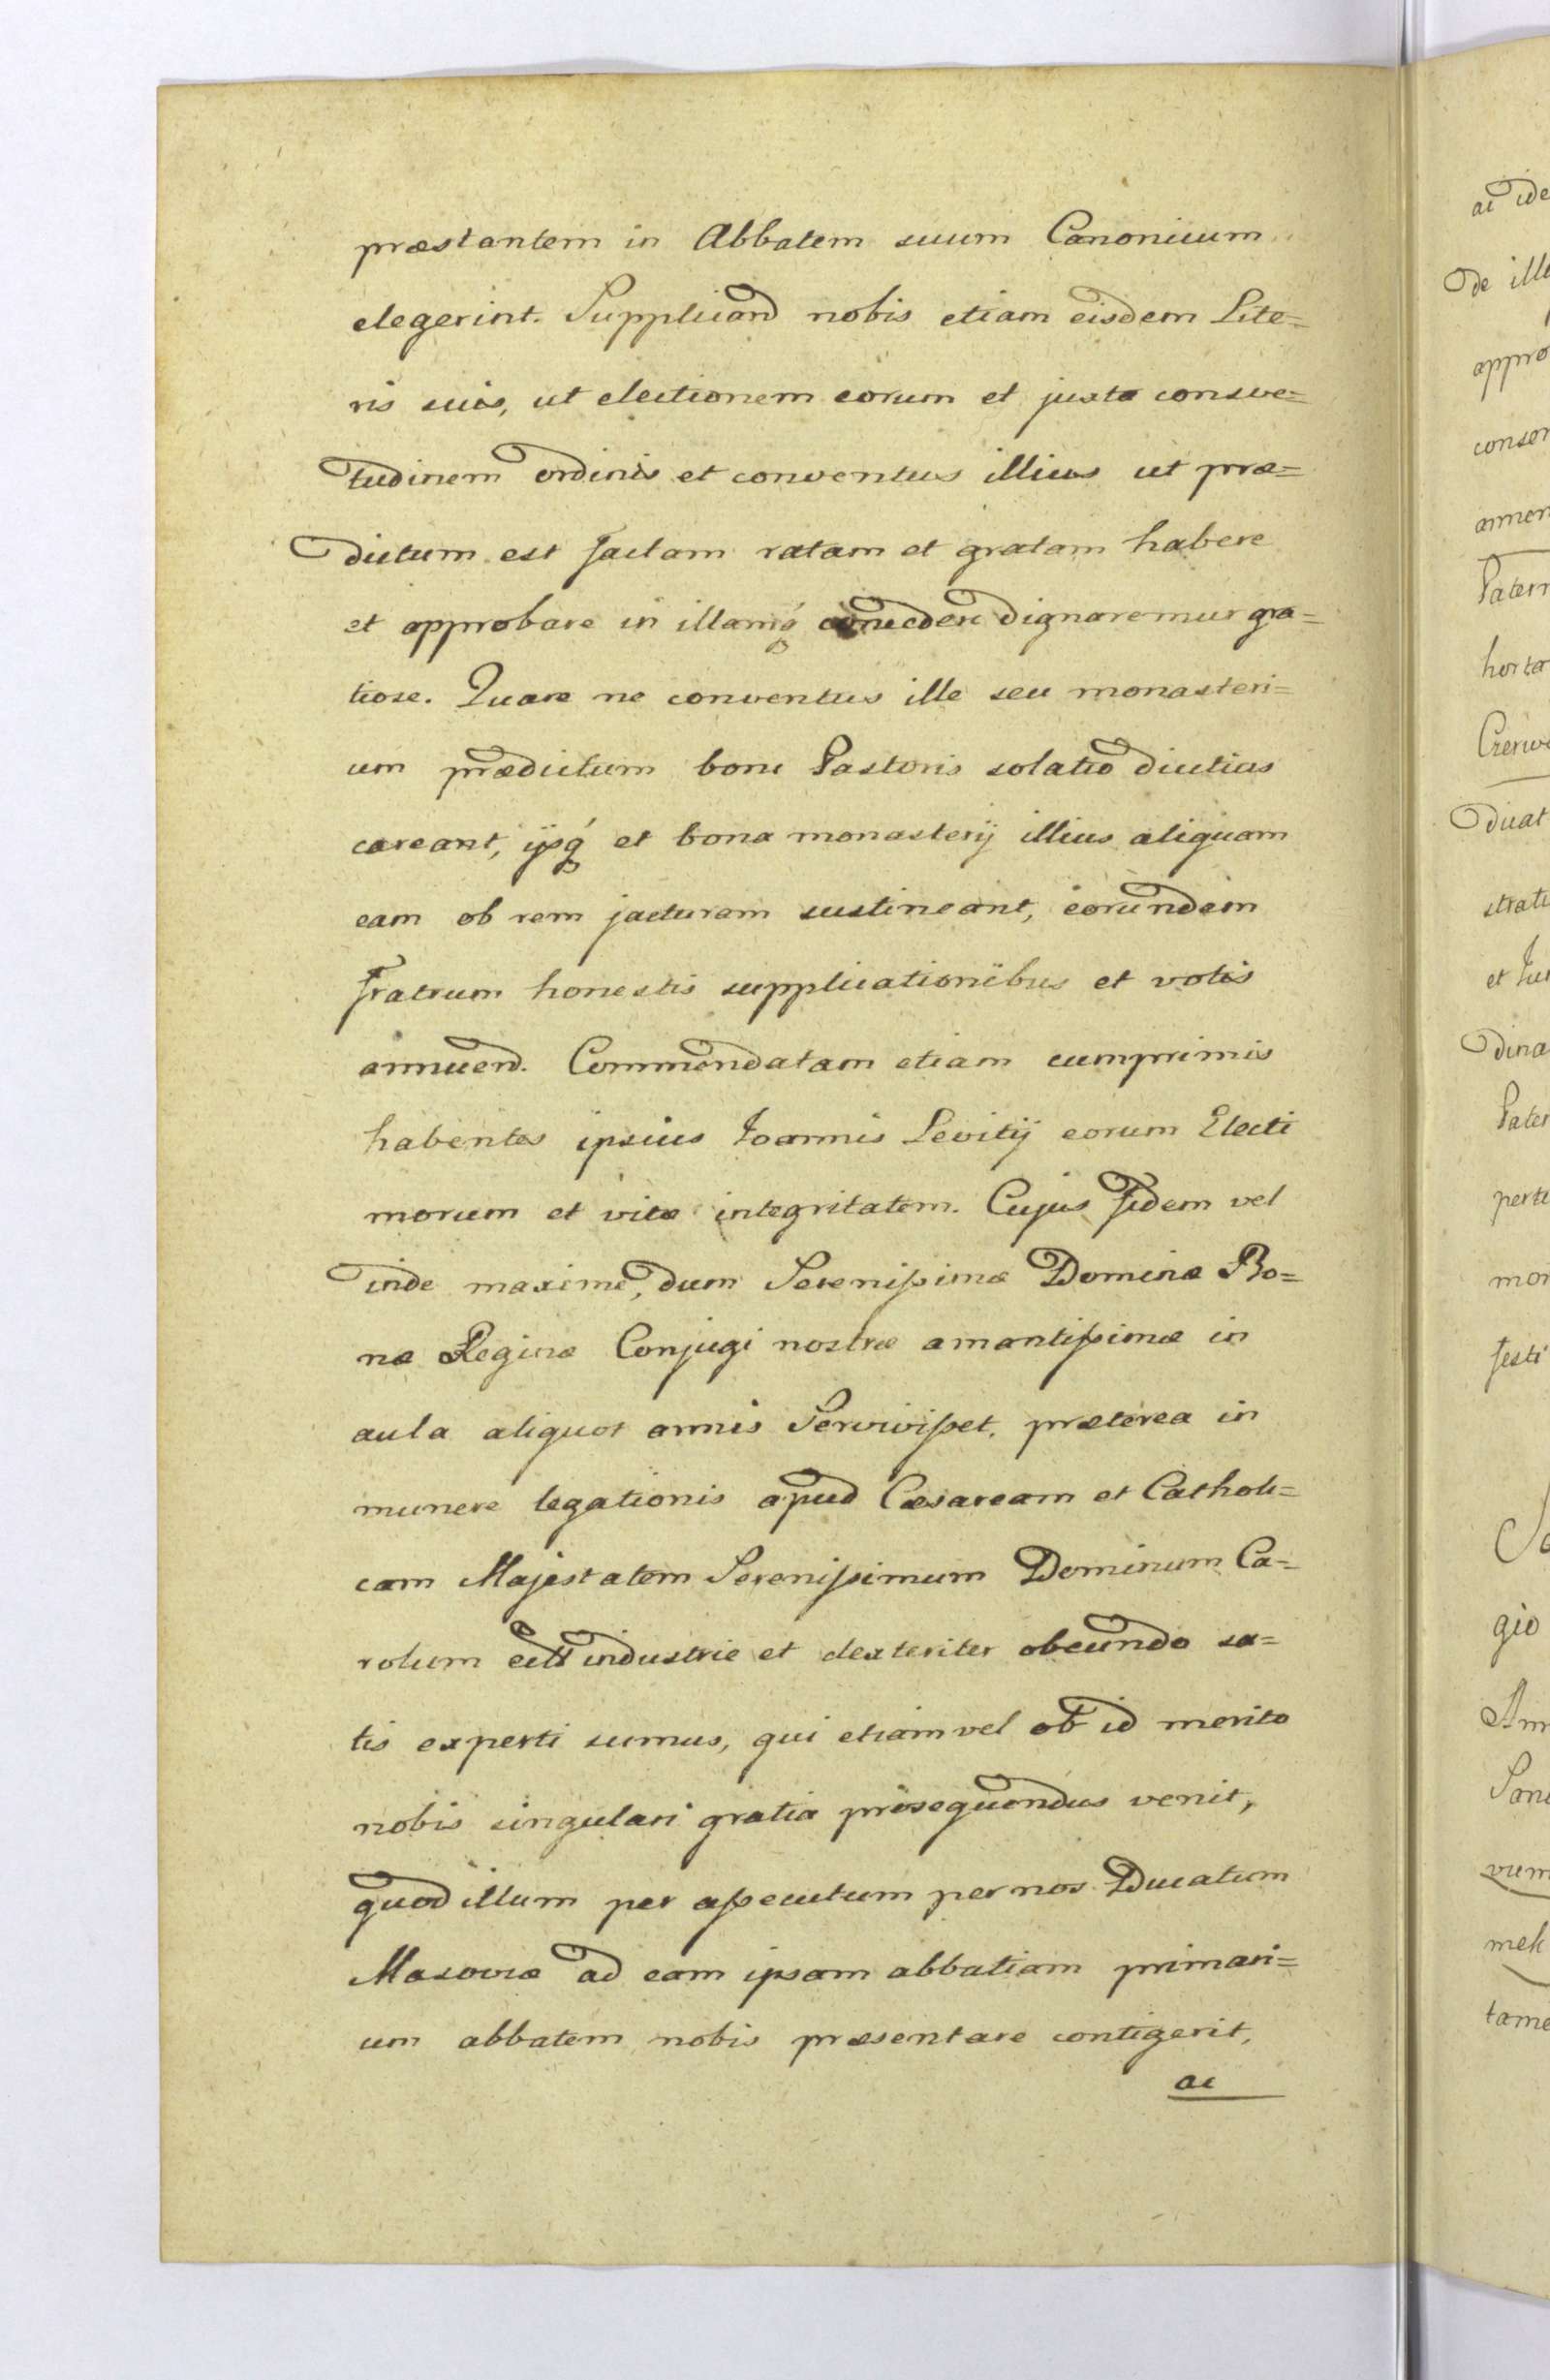 præstantem in Abbatem suum Canonicum
elegerint. Supplicand nobis etiam eisdem Lite=
ris suis, ut electionem eorum et juxta consve=
tudinem ordinis et conventus illius ut præ=
dictum est factam ratam et gratam habere
et approbare in illamq́ concedere dignaremur gra=
tiose. Quare ne conventus ille seu monasteri=
um prædictum boni Pastoris solatio diutius
careant, ijsq́ et bona monasterij illius aliquam
eam ob rem jacturam sustineant, eorundem
Fratrum honestis supplicationibus et votis
annuend. Commendatam etiam cumprimis
habentes ipsius Joannis Levitij eorum Electi
morum et vitæ integritatem. Cujus fidem vel
inde maxime, dum Serenißimæ Dominæ Bo=
næ Reginæ Conjugi nostræ amantißimæ in
aula aliquot annis Servivißet, præterea in
munere legationis apud Cæsaream et Catholi=
cam Majestatem Serenißimum Dominum Ca=
rolum industrie et dexteriter obeundo sa=
tis experti sumus, qui etiam vel ob id merito
nobis singulari gratia prosequendus venit,
quod illum per aßecutum per nos Ducatum
Masoviæ ad eam ipsam abbatiam primari=
um abbatem nobis præsentare contigerit,
ac
ac ide
de ille
appro
conser
annen
Patern
horta
Czerw
ducat
stratu
et Ju
dina
Pater
perti
mon
festi
gio
Ann
San
vum
mek
tame